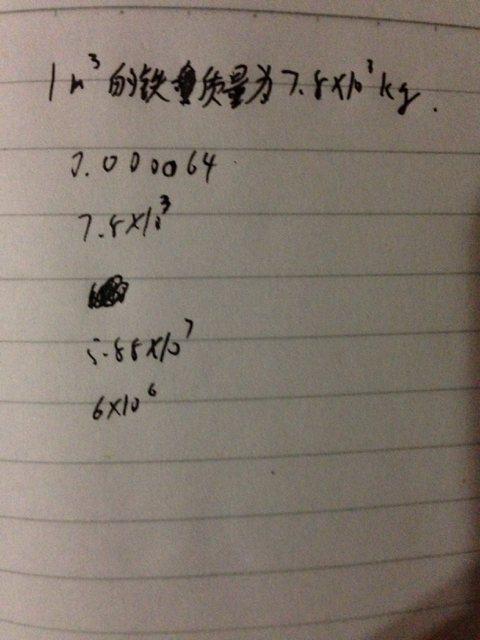 1m³的铁质量为7.8×10³kg.
0.000064
7.8×10³
5.88×10⁷
6×10⁶